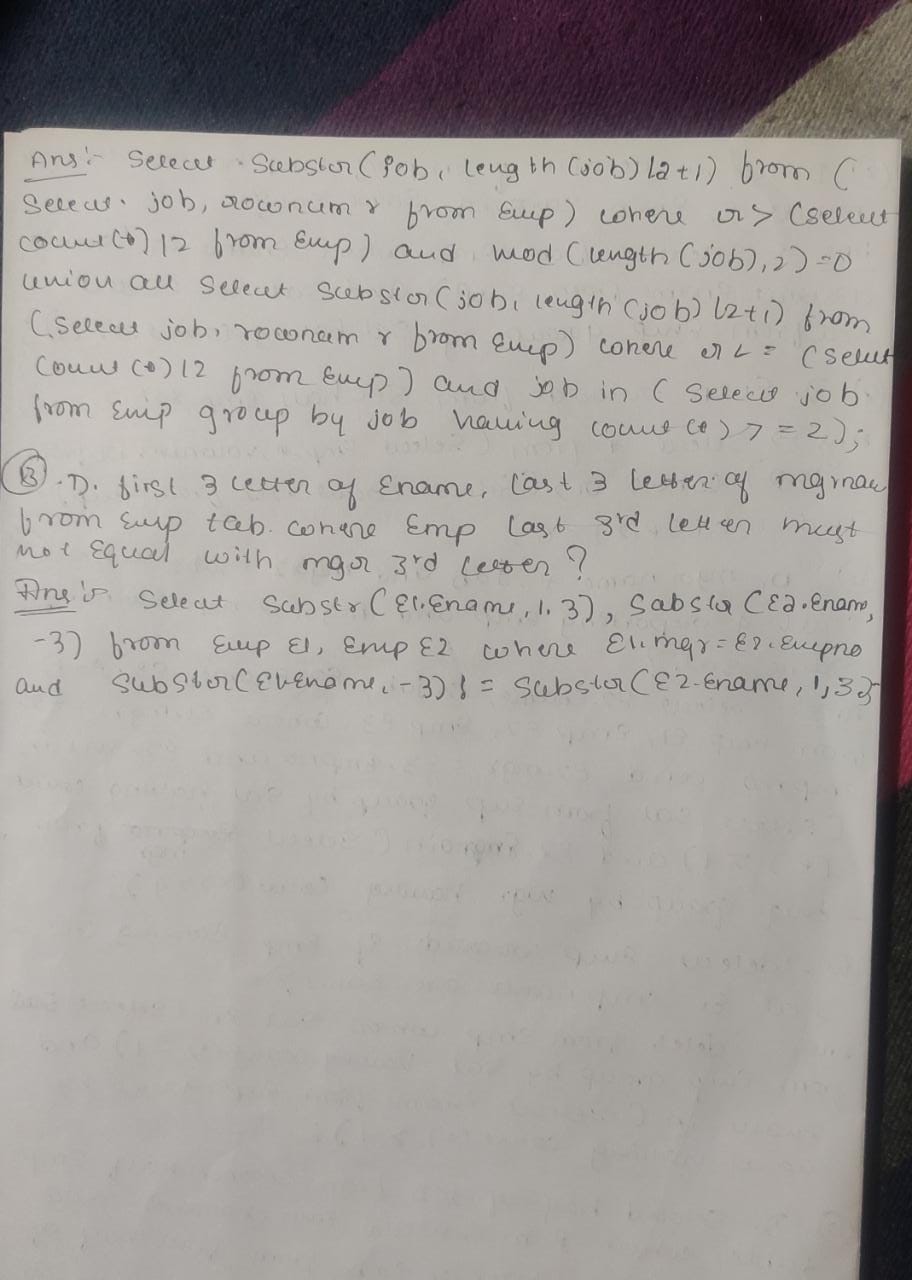 Ans:- Select Substr(job, length(job)/2+1) from (
Select job, rownum r from Emp) where r> (select
count(*)/2 from Emp) and mod(length(job),2)=0
union all Select Substr(job, length(job)/2+1) from
(Select job, rownam r from Emp) where r <= (Select
Count(*)/2 from Emp) and job in (Select job
from Emp group by job having count(*) >=2);
(B) .D. first 3 letter of Ename, last 3 letter of mgrnam
from Emp tab. where Emp last 3rd letter must
not Equal with mgr 3rd letter?
Ans:- Select Substr(E1.Ename, 1, 3), Substr(E2.Enam,
-3) from Emp E1, Emp E2 where E1.mgr=E2.Empno
and Substr(E1.Ename, -3) != Substr(E2.Ename, 1,3)